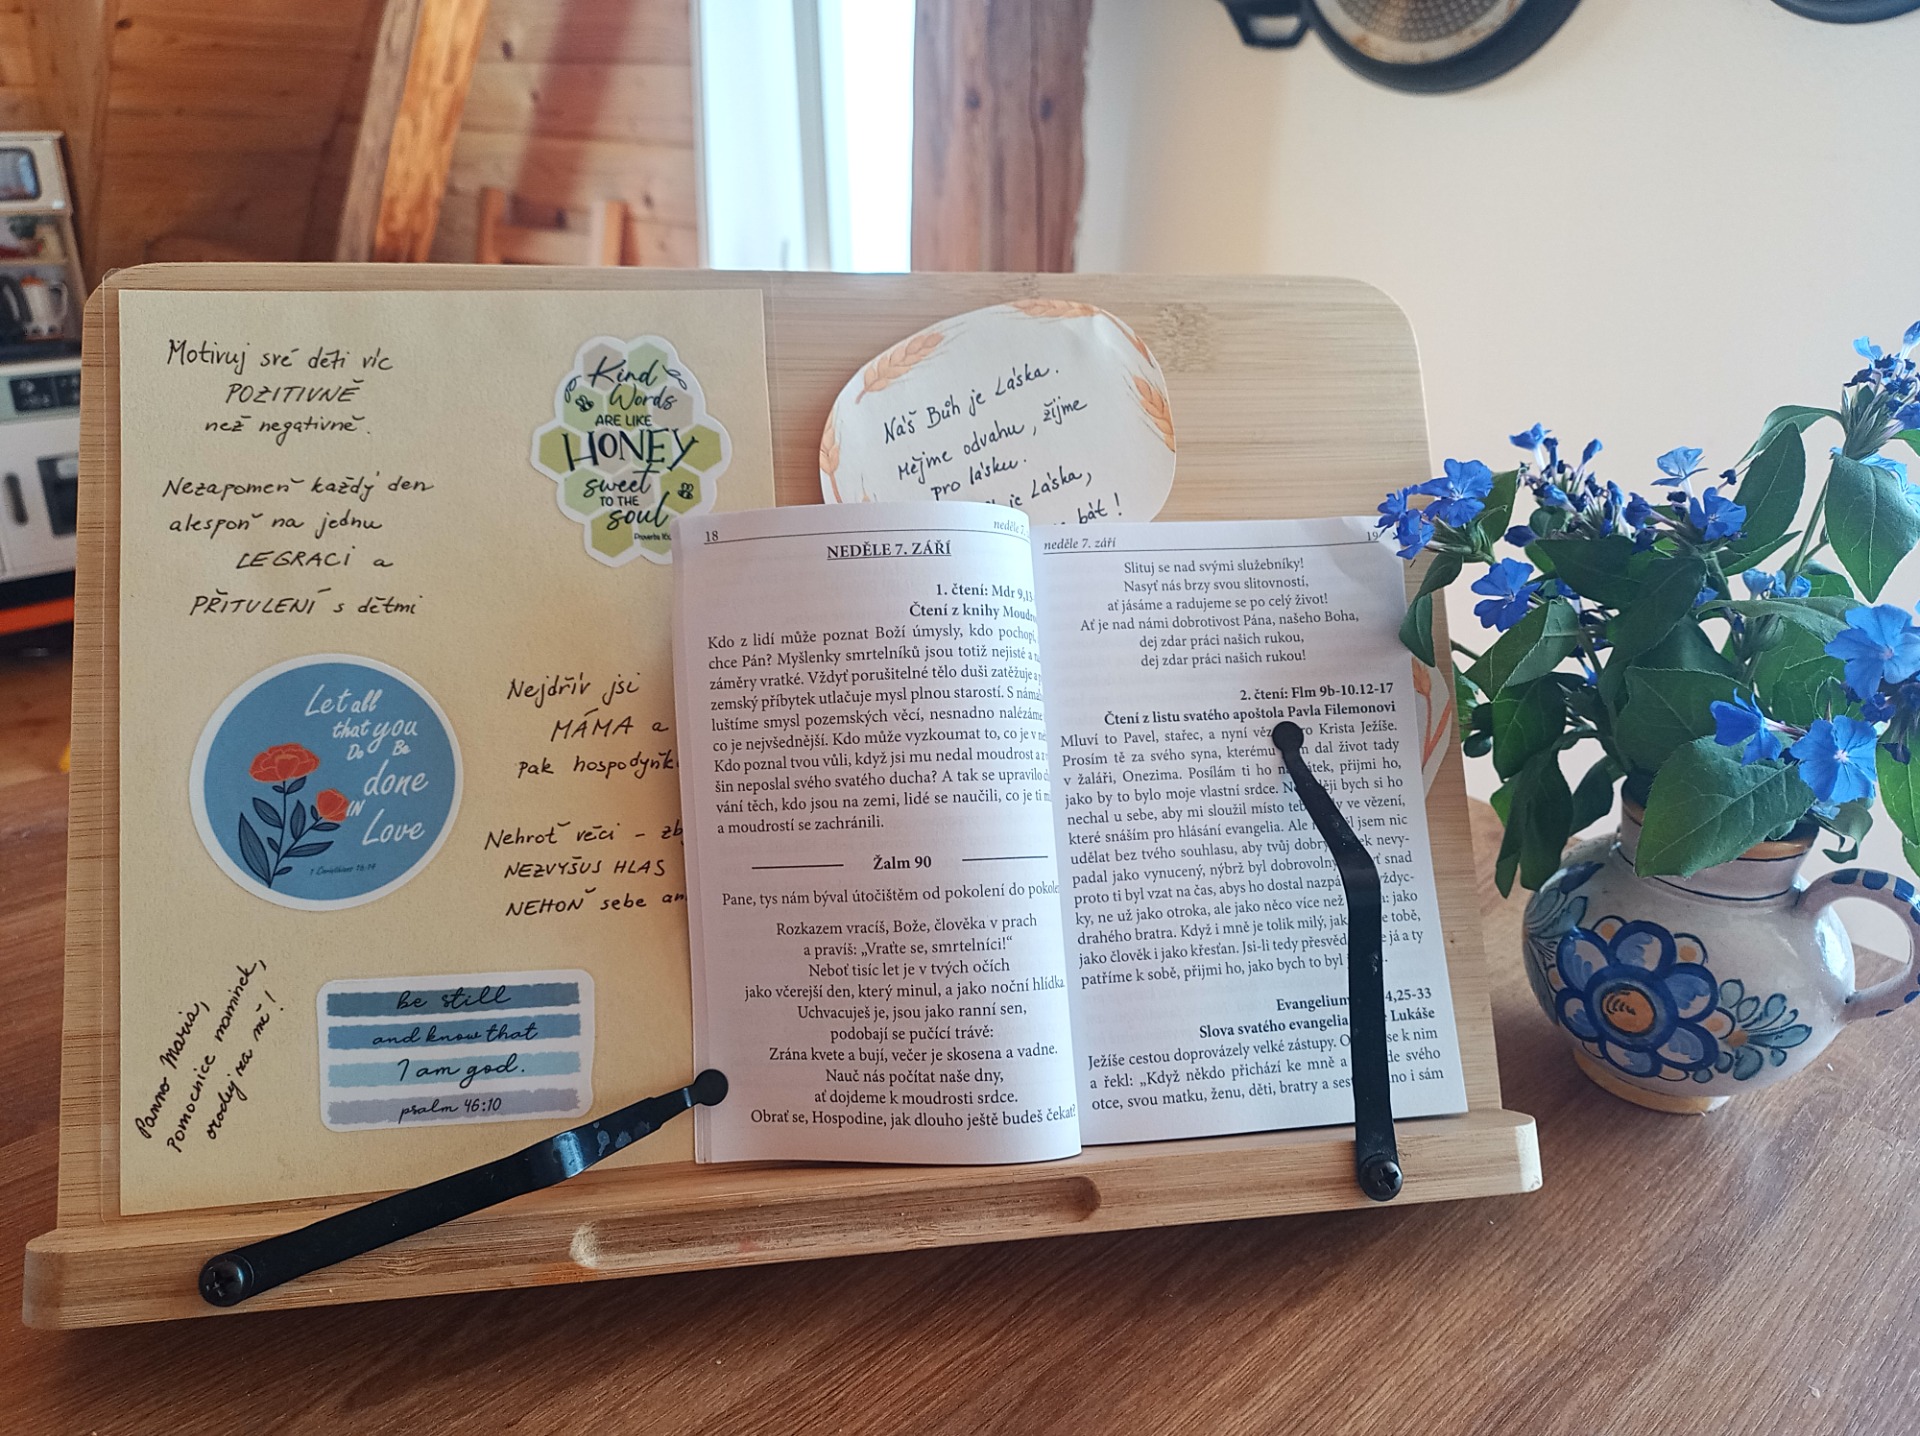 Motivuj své děti víc
POZITIVNĚ
než negativně.
Nezapomeň každý den
alespoň na jednu
LEGRACI a
PŘITULENÍ s dětmi
Kind
Words
ARE LIKE
HONEY
sweet
TO THE
soul
Proverbs
Let all
that you
Do Be
done
IN
Love
1 Corinthians 16:14
Nejdřív jsi
MÁMA a
pak hospodyňk
Nehroť věci - zb
NEZVYŠUS HLAS
NEHOŇ sebe an
Panno Maria,
Pomocnice maminek,
oroduj za mě!
be still
and know that
I am god.
psalm 46:10
Náš Bůh je Láska.
Mějme odvahu, žijme
pro lásku.
je Láska,
bát!
18
neděle 7.
NEDĚLE 7. ZÁŘÍ
1. čtení: Mdr 9,13-
Čtení z knihy Moudro
Kdo z lidí může poznat Boží úmysly, kdo pochopí,
chce Pán? Myšlenky smrtelníků jsou totiž nejisté a
záměry vratké. Vždyť porušitelné tělo duši zatěžuje a
zemský příbytek utlačuje mysl plnou starostí. S náma
luštíme smysl pozemských věcí, nesnadno nalézáme
co je nejvšednější. Kdo může vyzkoumat to, co je v
Kdo poznal tvou vůli, když jsi mu nedal moudrost a
šin neposlal svého svatého ducha? A tak se upravilo
vání těch, kdo jsou na zemi, lidé se naučili, co je ti
a moudrostí se zachránili.
Žalm 90
Pane, tys nám býval útočištěm od pokolení do pokole
Rozkazem vracíš, Bože, člověka v prach
a pravíš: „Vraťte se, smrtelníci!“
Neboť tisíc let je v tvých očích
jako včerejší den, který minul, a jako noční hlídka
Uchvacuješ je, jsou jako ranní sen,
podobají se pučící trávě:
Zrána kvete a bují, večer je skosena a vadne.
Nauč nás počítat naše dny,
ať dojdeme k moudrosti srdce.
Obrať se, Hospodine, jak dlouho ještě budeš čekat?
neděle 7. září
19
Slituj se nad svými služebníky!
Nasyť nás brzy svou slitovností,
ať jásáme a radujeme se po celý život!
Ať je nad námi dobrotivost Pána, našeho Boha,
dej zdar práci našich rukou,
dej zdar práci našich rukou!
2. čtení: Flm 9b-10.12-17
Čtení z listu svatého apoštola Pavla Filemonovi
Mluví to Pavel, stařec, a nyní věz ro Krista Ježíše.
Prosím tě za svého syna, kterému m dal život tady
v žaláři, Onezima. Posílám ti ho na átek, přijmi ho,
jako by to bylo moje vlastní srdce. N ději bych si ho
nechal u sebe, aby mi sloužil místo teb dy ve vězení,
které snáším pro hlásání evangelia. Ale l jsem nic
udělat bez tvého souhlasu, aby tvůj dobrý ek nevy-
padal jako vynucený, nýbrž byl dobrovolný ť snad
proto ti byl vzat na čas, abys ho dostal nazpá vždyc-
ky, ne už jako otroka, ale jako něco více než : jako
drahého bratra. Když i mně je tolik milý, jak e tobě,
jako člověk i jako křesťan. Jsi-li tedy přesvěd e já a ty
patříme k sobě, přijmi ho, jako bych to byl
Evangelium 4,25-33
Slova svatého evangelia e Lukáše
Ježíše cestou doprovázely velké zástupy. O se k nim
a řekl: „Když někdo přichází ke mně a de svého
otce, svou matku, ženu, děti, bratry a sest no i sám